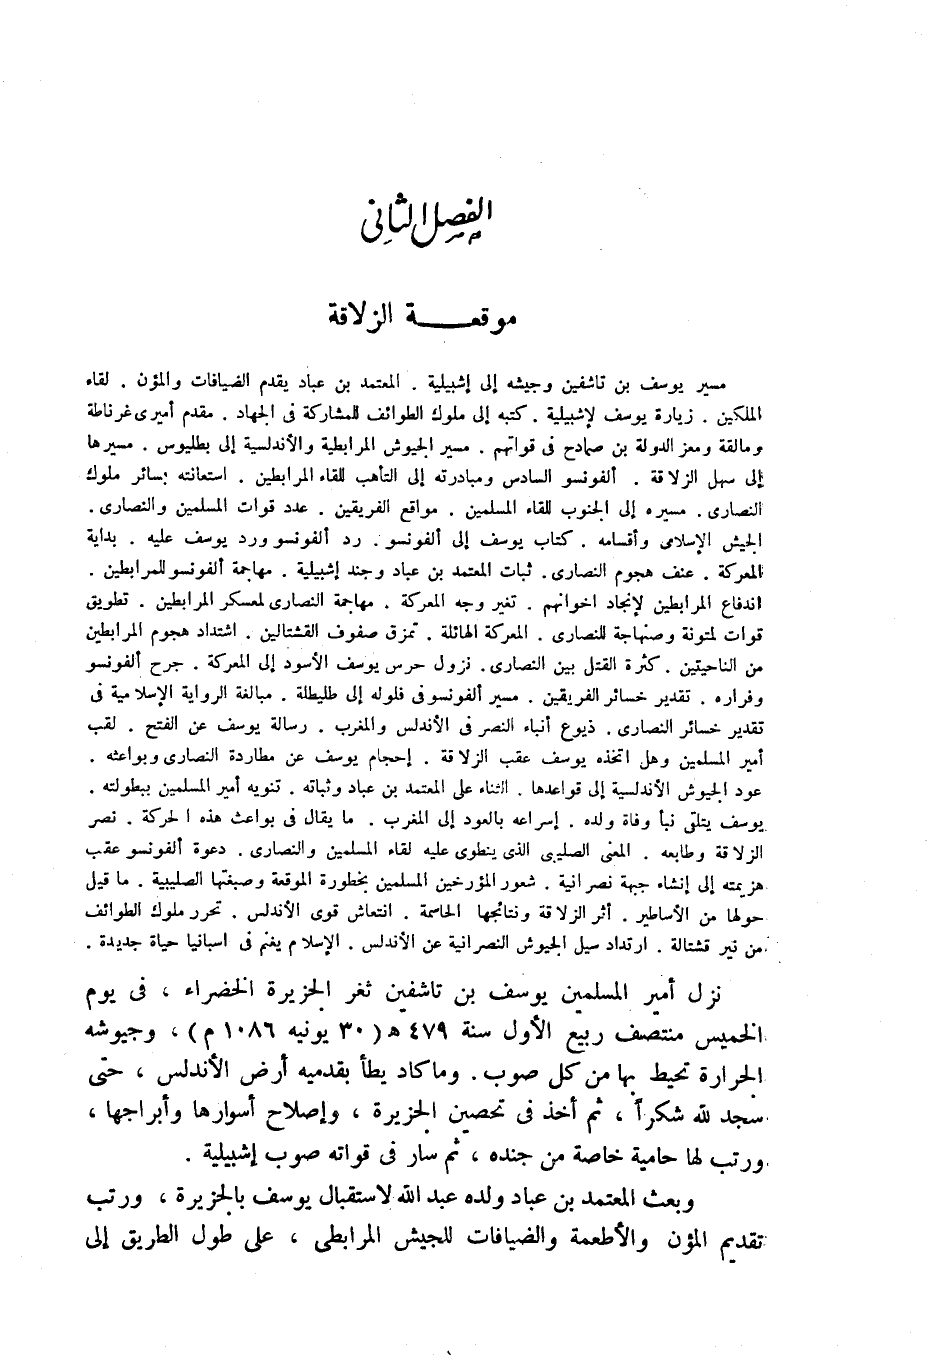 الفصل الثانى
موقعة الزلاقة
مسير يوسف بن تاشفين وجيشه إلى إشبيلية . المعتمد بن عباد يقدم الضيافات والمؤن . لقاء
الملكين . زيارة يوسف لإشبيلية . كتبه إلى ملوك الطوائف للمشاركة فى الجهاد . مقدم أميرى غرناطة
ومالقة ومعز الدولة بن صمادح فى قواتهم . مسير الجيوش المرابطية والأندلسية إلى بطليوس . مسيرها
إلى سهل الزلاقة . ألفونسو السادس ومبادرته إلى التأهب للقاء المرابطين . استعانته بسائر ملوك
النصارى . مسيره إلى الجنوب للقاء المسلمين . مواقع الفريقين . عدد قوات المسلمين والنصارى .
الجيش الإسلامى وأقسامه . كتاب يوسف إلى ألفونسو . رد ألفونسو ورد يوسف عليه . بداية
المعركة . عنف هجوم النصارى . ثبات المعتمد بن عباد وجند إشبيلية . مهاجمة ألفونسو للمرابطين .
اندفاع المرابطين لإنجاد اخوانهم . تغير وجه المعركة . مهاجمة النصارى لمعسكر المرابطين . تطويق
قوات لمتونة وصنهاجة للنصارى . المعركة الهائلة . تمزق صفوف القشتالين . اشتداد هجوم المرابطين
من الناحيتين . كثرة القتل بين النصارى . نزول حرس يوسف الأسود إلى المعركة . جرح ألفونسو
وفراره . تقدير خسائر الفريقين . مسير ألفونسو فى فلوله إلى طليطلة . مبالغة الرواية الإسلامية فى
تقدير خسائر النصارى . ذيوع أنباء النصر فى الأندلس والمغرب . رسالة يوسف عن الفتح . لقب
أمير المسلمين وهل اتخذه يوسف عقب الزلاقة . إحجام يوسف عن مطاردة النصارى وبواعثه .
عود الجيوش الأندلسية إلى قواعدها . الثناء على المعتمد بن عباد وثباته . تنويه أمير المسلمين ببطولته .
يوسف يتلقى نبأ وفاة ولده . إسراعه بالعود إلى المغرب . ما يقال فى بواعث هذه الحركة . نصر
الزلاقة وطابعه . المعنى الصليبى الذى ينطوى عليه لقاء المسلمين والنصارى . دعوة ألفونسو عقب
هزيمته إلى إنشاء جبهة نصرانية . شعور المؤرخين المسلمين بخطورة الموقعة وصبغتها الصليبية . ما قيل
حولها من الأساطير . أثر الزلاقة ونتائجها الحاسمة . انتعاش قوى الأندلس . تحرر ملوك الطوائف
من نير قشتالة . ارتداد سيل الجيوش النصرانية عن الأندلس . الإسلام يغنم فى اسبانيا حياة جديدة .
نزل أمير المسلمين يوسف بن تاشفين ثغر الجزيرة الخضراء ، فى يوم
الخميس منتصف ربيع الأول سنة ٤٧٩ ه ( ٣٠ يونيه ١٠٨٦ م ) ، وجيوشه
الجرارة تحيط بها من كل صوب . وما كاد يطأ بقدميه أرض الأندلس ، حتى
سجد لله شكراً ، ثم أخذ فى تحصين الجزيرة ، وإصلاح أسوارها وأبراجها ،
ورتب لها حامية خاصة من جنده ، ثم سار فى قواته صوب إشبيلية .
وبعث المعتمد بن عباد ولده عبد الله لاستقبال يوسف بالجزيرة ، ورتب
تقديم المؤن والأطعمة والضيافات للجيش المرابطى ، على طول الطريق إلى